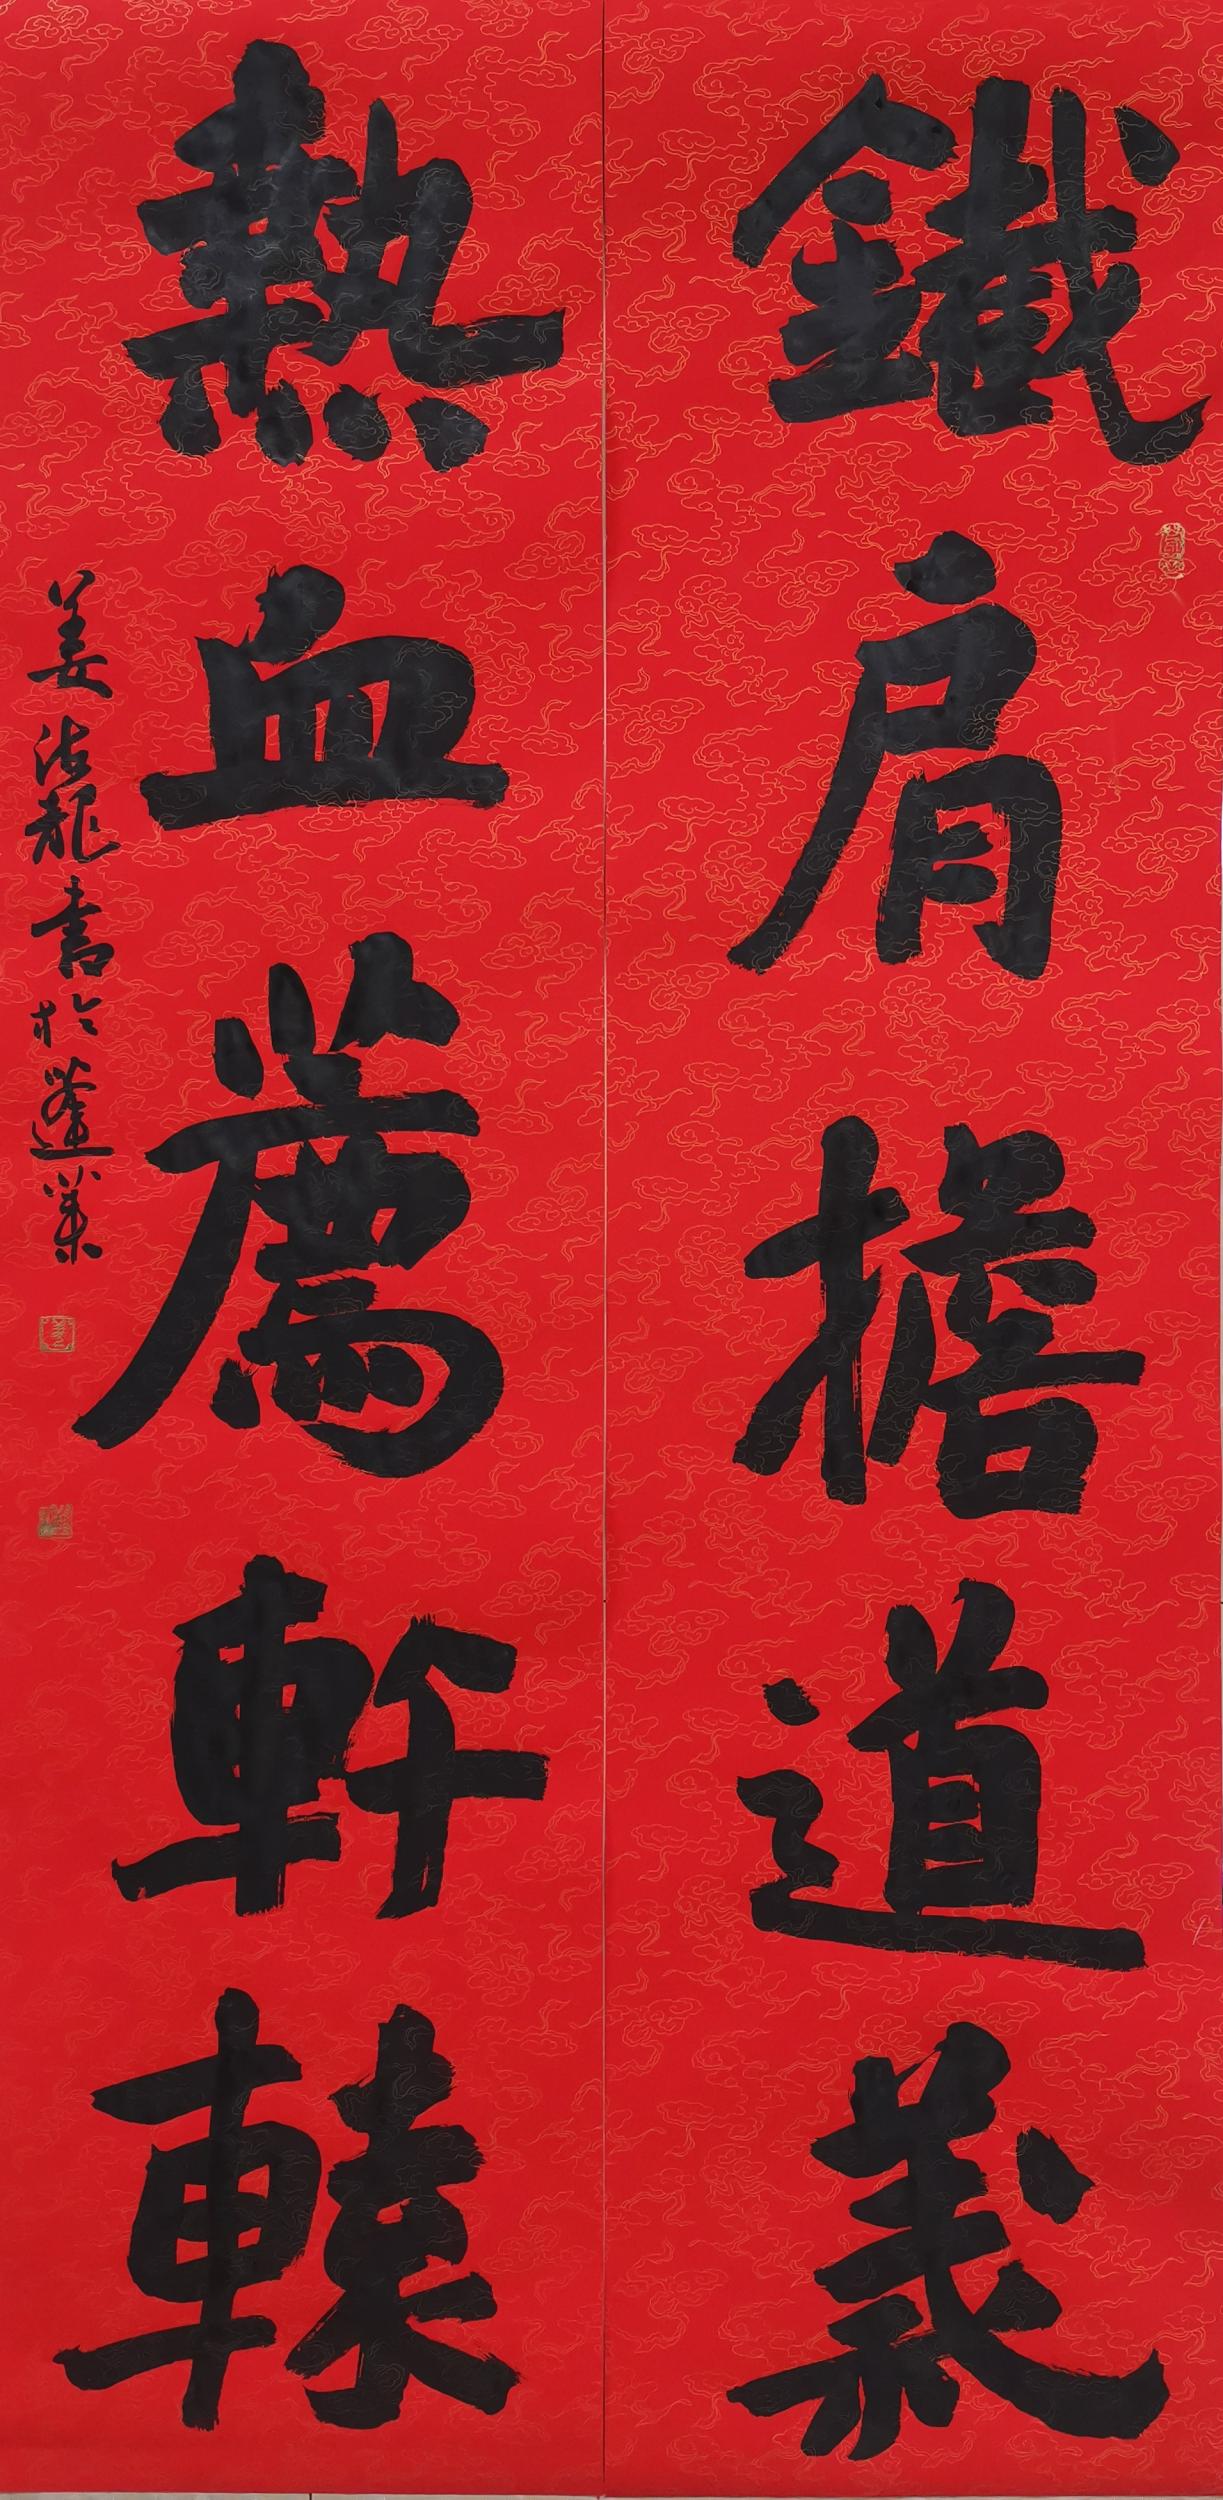 鐵肩擔道義
熱血薦軒轅
姜法龍書於蓬萊